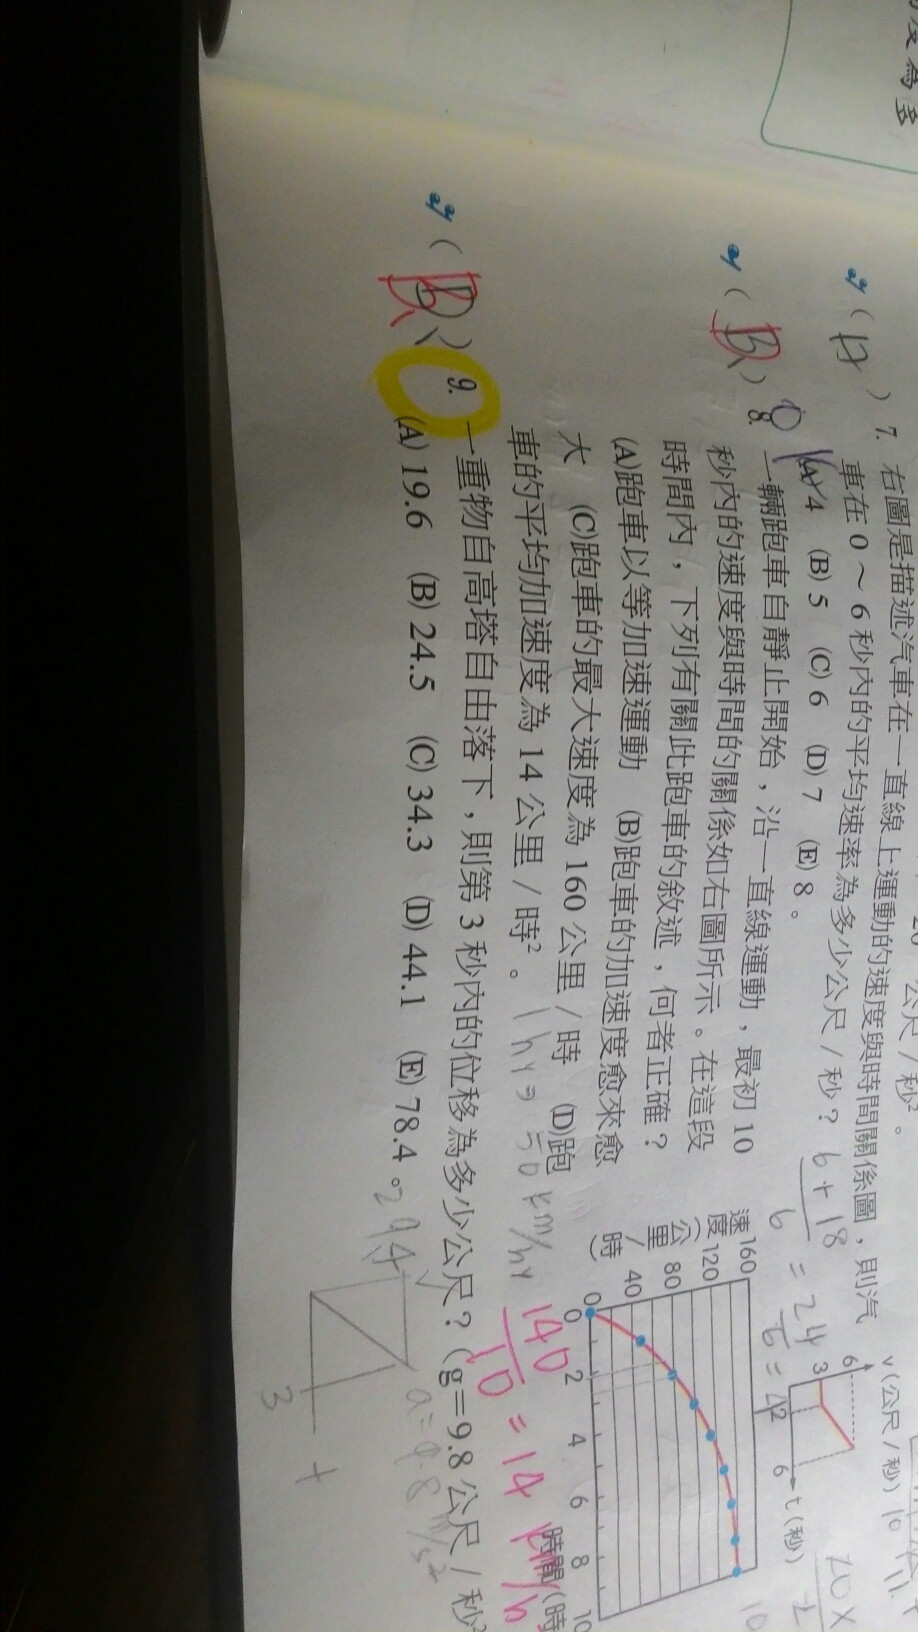 度為多
公尺/秒²。
7. 右圖是描述汽車在一直線上運動的速度與時間關係圖,則汽
車在 0～6 秒內的平均速率為多少公尺/秒?
(A) 4 (B) 5 (C) 6 (D) 7 (E) 8。
6+18
6
= 24
6
= 4
v(公尺/秒)
6
3
2
6
t(秒)
(B) 8. 一輛跑車自靜止開始,沿一直線運動,最初 10
秒內的速度與時間的關係如右圖所示。在這段
時間內,下列有關此跑車的敘述,何者正確?
(A)跑車以等加速運動 (B)跑車的加速度愈來愈
大 (C)跑車的最大速度為 160 公里/時 (D)跑
車的平均加速度為 14 公里/時²。
速度(公里/時)
160
120
80
40
0
0 2 4 6 8 10
時間(時
140
10
= 14 km/h
(B) 9. 一重物自高塔自由落下,則第 3 秒內的位移為多少公尺?(g=9.8 公尺/秒²
(A) 19.6 (B) 24.5 (C) 34.3 (D) 44.1 (E) 78.4。
29.4
a=9.8m/s²
3
t